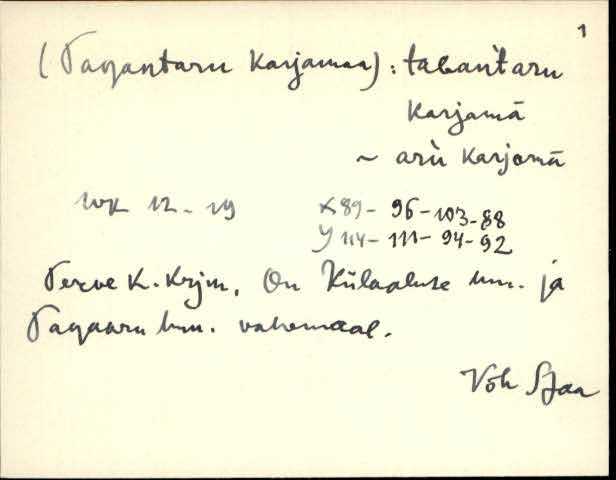 1
(Tagantaru Karjamaa) : tabantaru
Karjamā
~ arù Karjamā
WK 12 - 19 X 89 - 96 - 103 - 88
Y 114 - 111 - 94 - 92
Terve K. Krjm. On Külaaluse hm. ja
Tagaaru hm. vahemaal.
Võh Sjaa